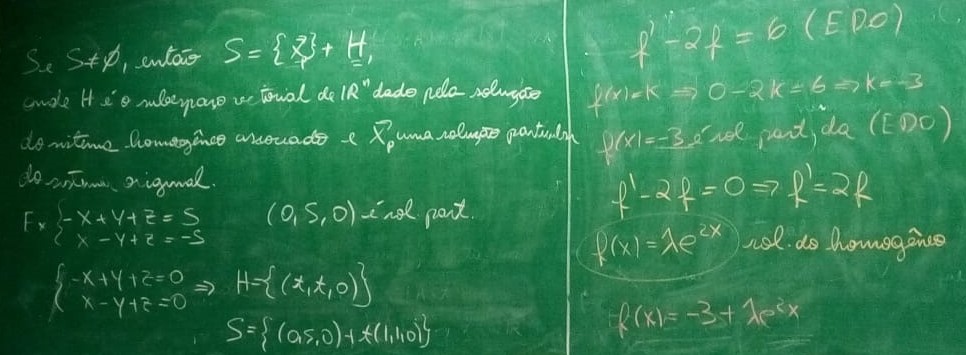 Se S≠∅, então S = {X⃗p} + H,
onde H é o subespaço vetorial de IRⁿ dado pela solução
do sistema homogêneo associado e X⃗p uma solução particular
do sistema original.
Ex { -X + Y + Z = 5
X - Y + Z = -5
(0, 5, 0) é sol part.
{ -X + Y + Z = 0
X - Y + Z = 0
⇒ H = {(t, t, 0)}
S = {(0,5,0) + t(1,1,0)}
f' - 2f = 6 (EDO)
f(x) = K ⇒ 0 - 2K = 6 ⇒ K = -3
f(x) = -3 é sol part, da (EDO)
f' - 2f = 0 ⇒ f' = 2f
f(x) = λe²ˣ sol. do homogêneo
f(x) = -3 + λe²ˣ